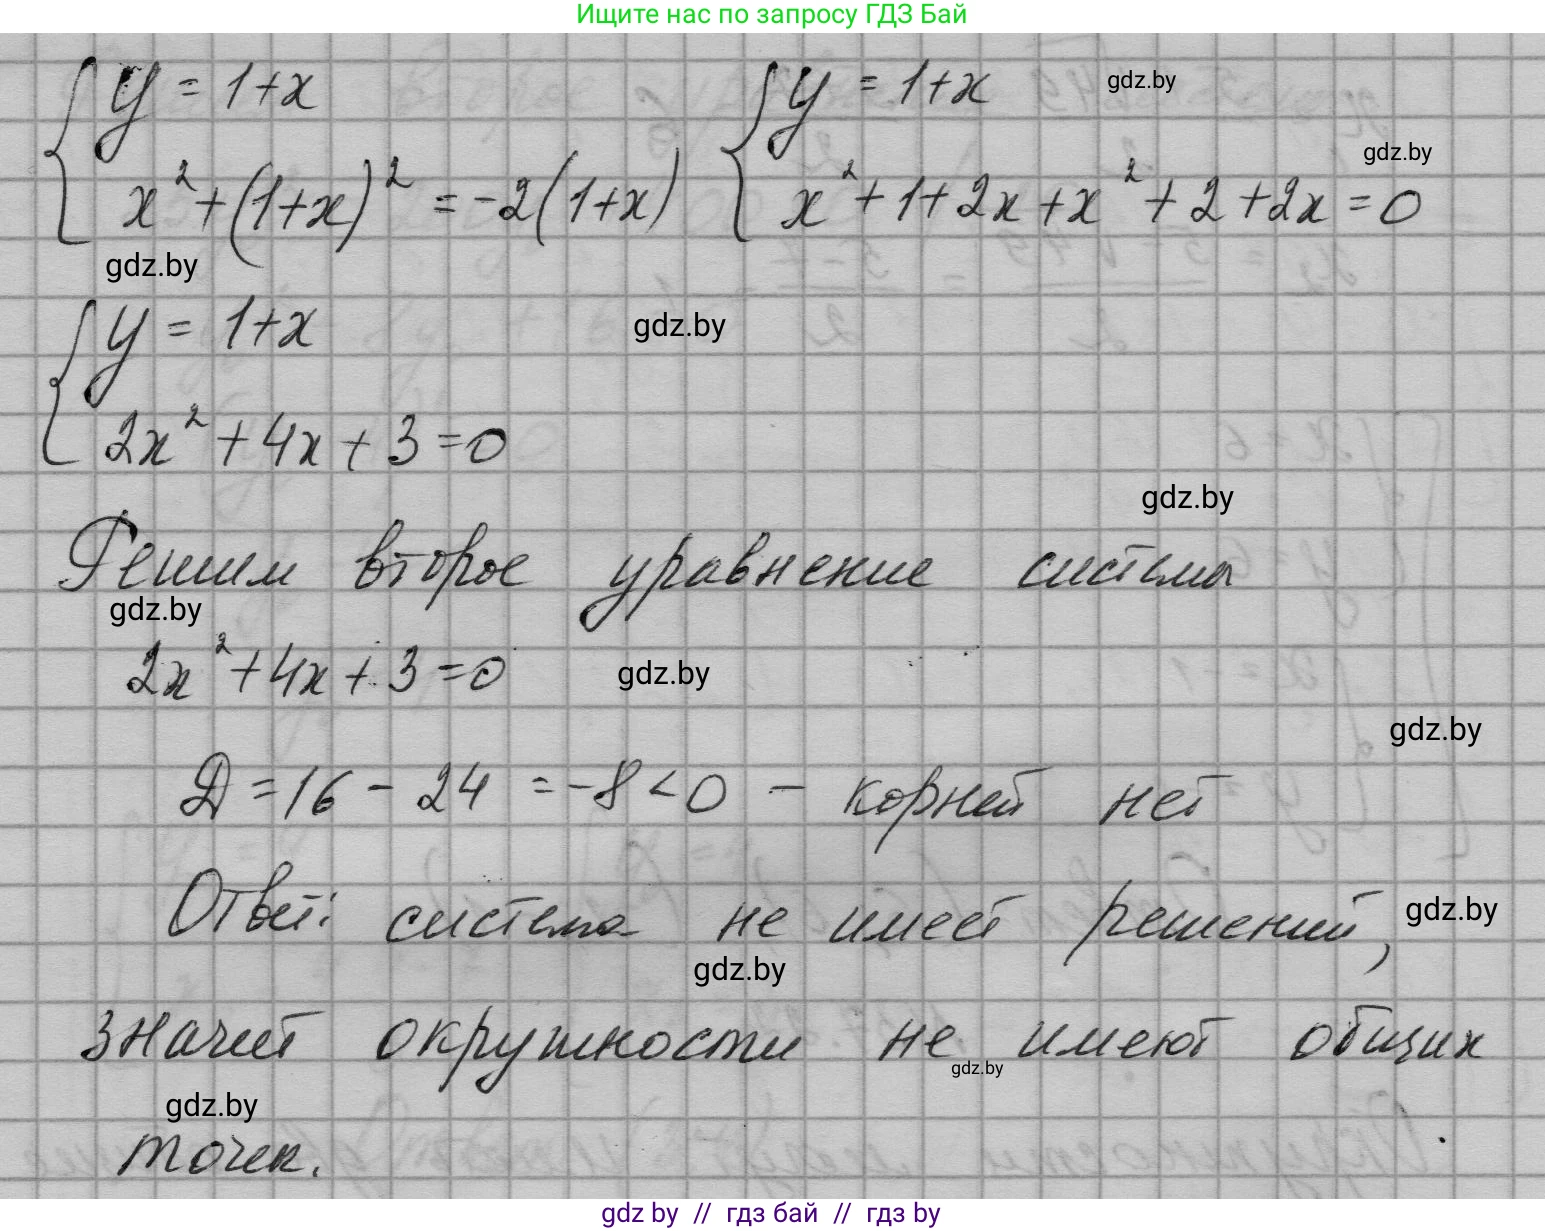 Ищите нас по запросу ГДЗ Бай
{ y = 1+x { y = 1+x gdz.by
x² + (1+x)² = -2(1+x) x² + 1 + 2x + x² + 2 + 2x = 0 gdz.by
gdz.by
{ y = 1+x gdz.by
2x² + 4x + 3 = 0
gdz.by
Решим второе уравнение системы
gdz.by
2x² + 4x + 3 = 0 gdz.by
gdz.by
Д = 16 - 24 = -8 < 0 - корней нет
Ответ: система не имеет решений, gdz.by
gdz.by
значит окружности не имеют общих
gdz.by
gdz.by
точек.
gdz by // гдз бай // гдз by